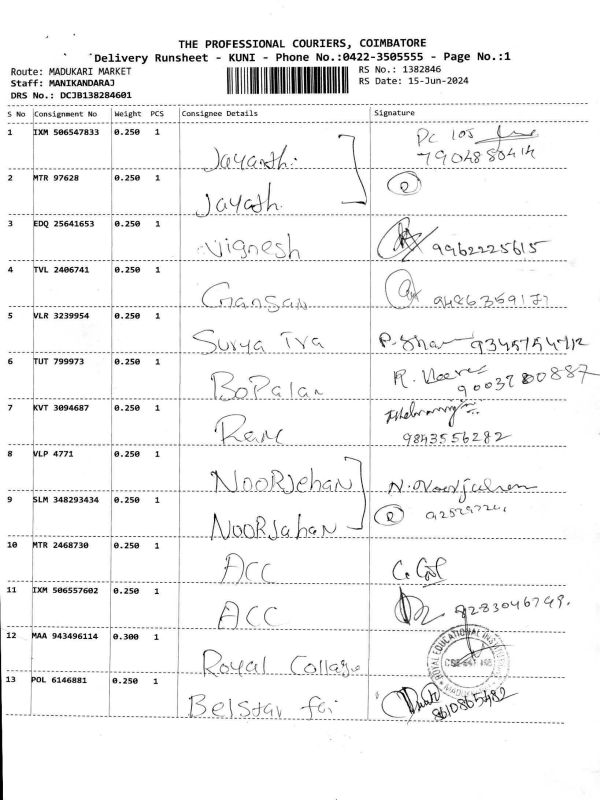 THE PROFESSIONAL COURIERS, COIMBATORE
Delivery Runsheet - KUNI - Phone No.:0422-3505555 - Page No.:1
Route: MADUKARI MARKET
RS No.: 1382846
Staff: MANIKANDARAJ
RS Date: 15-Jun-2024
DRS No.: DCJB138284601
S No Consignment No Weight PCS Consignee Details Signature
1 IXM 506547833 0.250 1 Jayanthi PC 105
7904880414
2 MTR 97628 0.250 1 Jayath. R
3 EDQ 25641653 0.250 1 Vignesh 9962225615
4 TVL 2406741 0.250 1 Gansan
5 VLR 3239954 0.250 1 Surya Tva 9345754712
6 TUT 799973 0.250 1 BoPalan 9003780887
7 KVT 3094687 0.250 1 Ram
9843556282
8 VLP 4771 0.250 1 NOORJehan N. Noorjahan
9 SLM 348293434 0.250 1 NOORJahan R
10 MTR 2468730 0.250 1 ACC
11 IXM 506557602 0.250 1 ACC 9283046749.
12 MAA 943496114 0.300 1 Royal Collage
13 POL 6146881 0.250 1 Belstar fai 8610865482